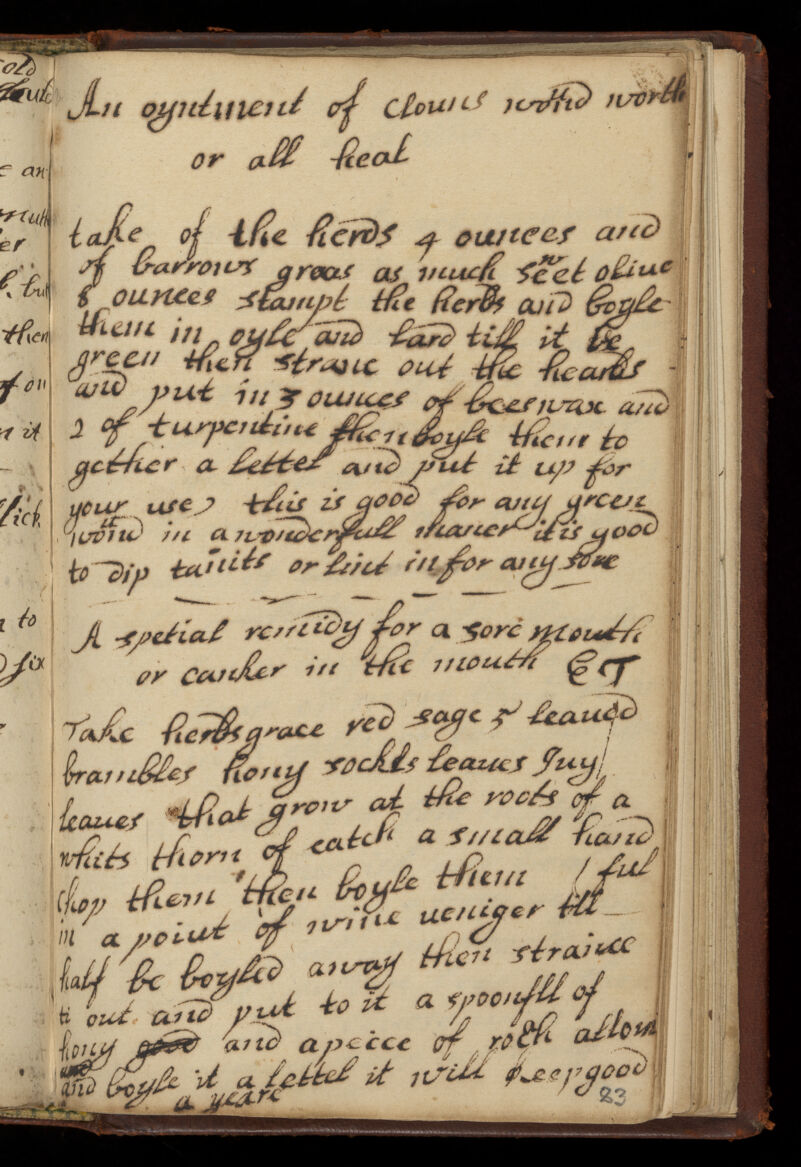 An oyntment of Clouns wound worth
or all heal
take of the herds 4 ounces and
of barrows greas as much sweet oliue
8 ounces stampt the herbs and boyle
them in oyle and lard till it be
green then straue out the hearbs
and put in 3 ounces of beeswax and
2 of turpentine then boyle them to
gether a lettel and put it up for
your use this is good for any green
wound in a wonderfull maner it is good
to dip or lint in for any sore
A spetial remidy for a sore mouth
or canker in the mouth E T
Take herbsgrace red sage 5 leaued
brambles hony sockls leaues Iuy
leaues that grow at the roots of a
whits thorn of eatch a small hand
ful
chop them then boyle them
in a point of wine ueniger till
half be boyled away then straince
ti out and put to it a spoonfll of
hony good and a peice of roch allom
and
and boyle it a lettel it will keep good
a yeare
83
old
e an
er
bu
then
of on
n it
lick
to
six